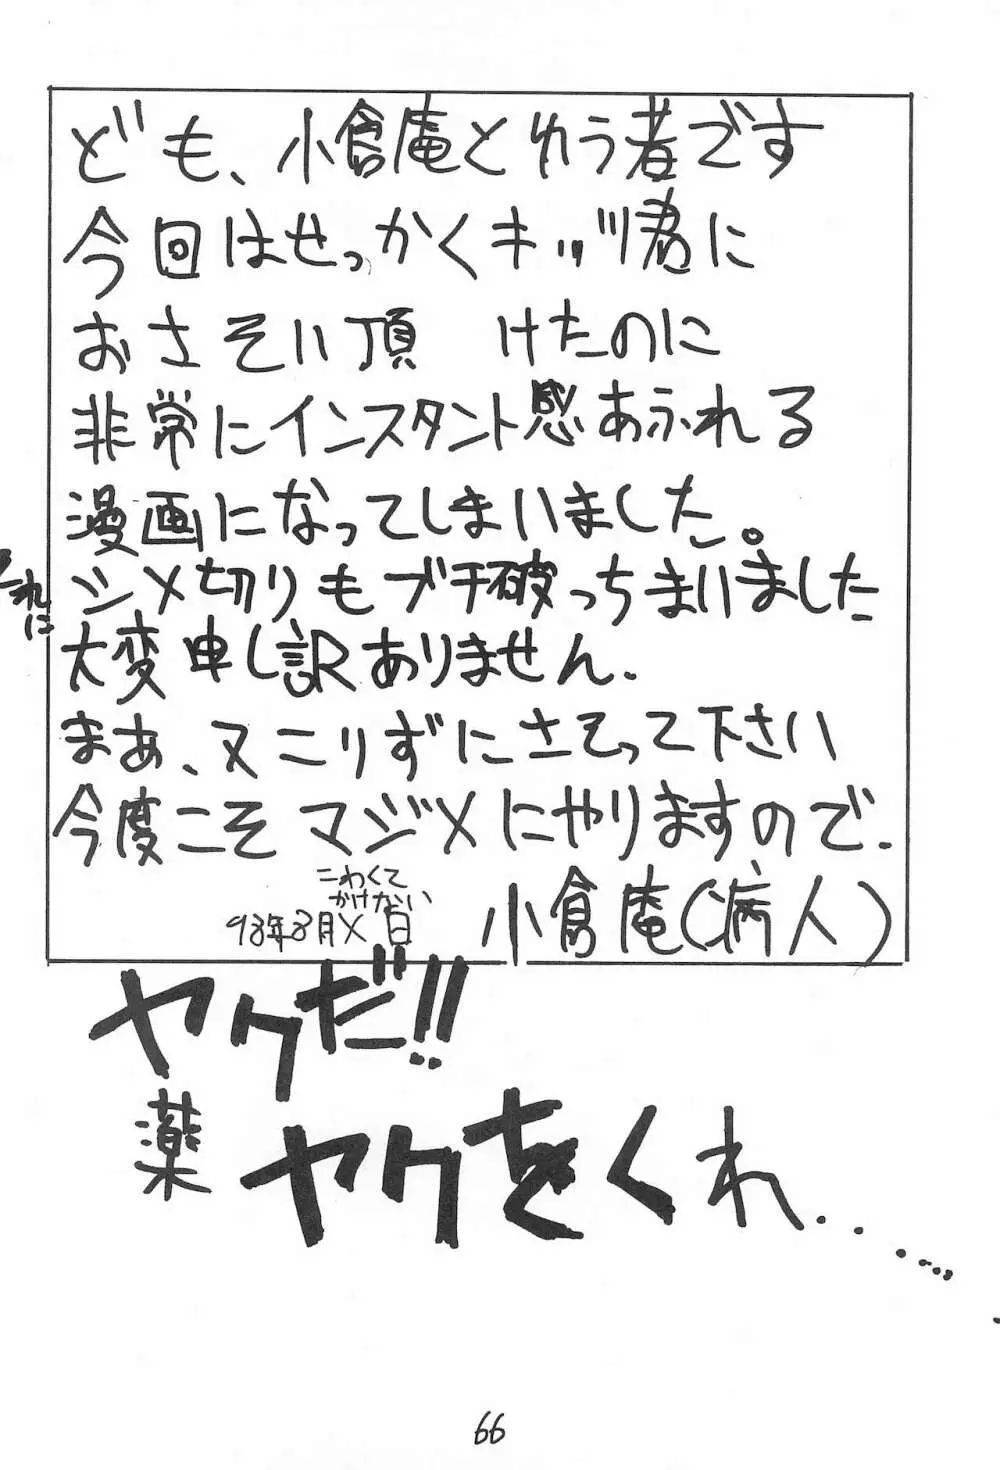 ども、小倉庵とゆう者です
今回はせっかくキッヅ君に
おさそい頂 けたのに
非常にインスタント感あふれる
漫画になってしまいました。
それに
シメ切りもブチ破っちまいました
大変申し訳ありません.
まあ、又こりずにさそって下さい
今度こそマジメにやりますので.
こわくて
かけない
93年8月X日
小倉庵(病人)
ヤクだ!!
薬
ヤクをくれ.........
66